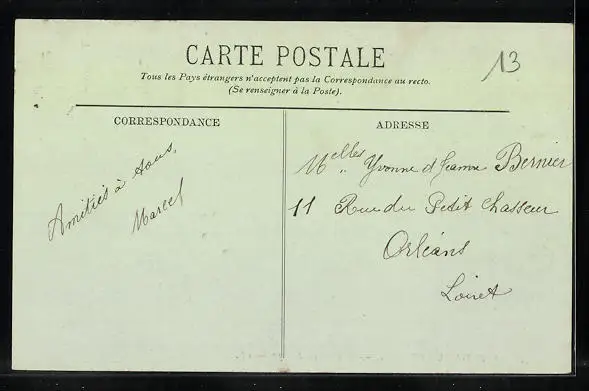 CARTE POSTALE
13
Tous les Pays étrangers n'acceptent pas la Correspondance au recto.
(Se renseigner à la Poste).
CORRESPONDANCE
Amitiés à tous,
Marcel
ADRESSE
Melles Yvonne et Jeanne Bernier
11 Rue du Petit Chasseur
Orléans
Loiret